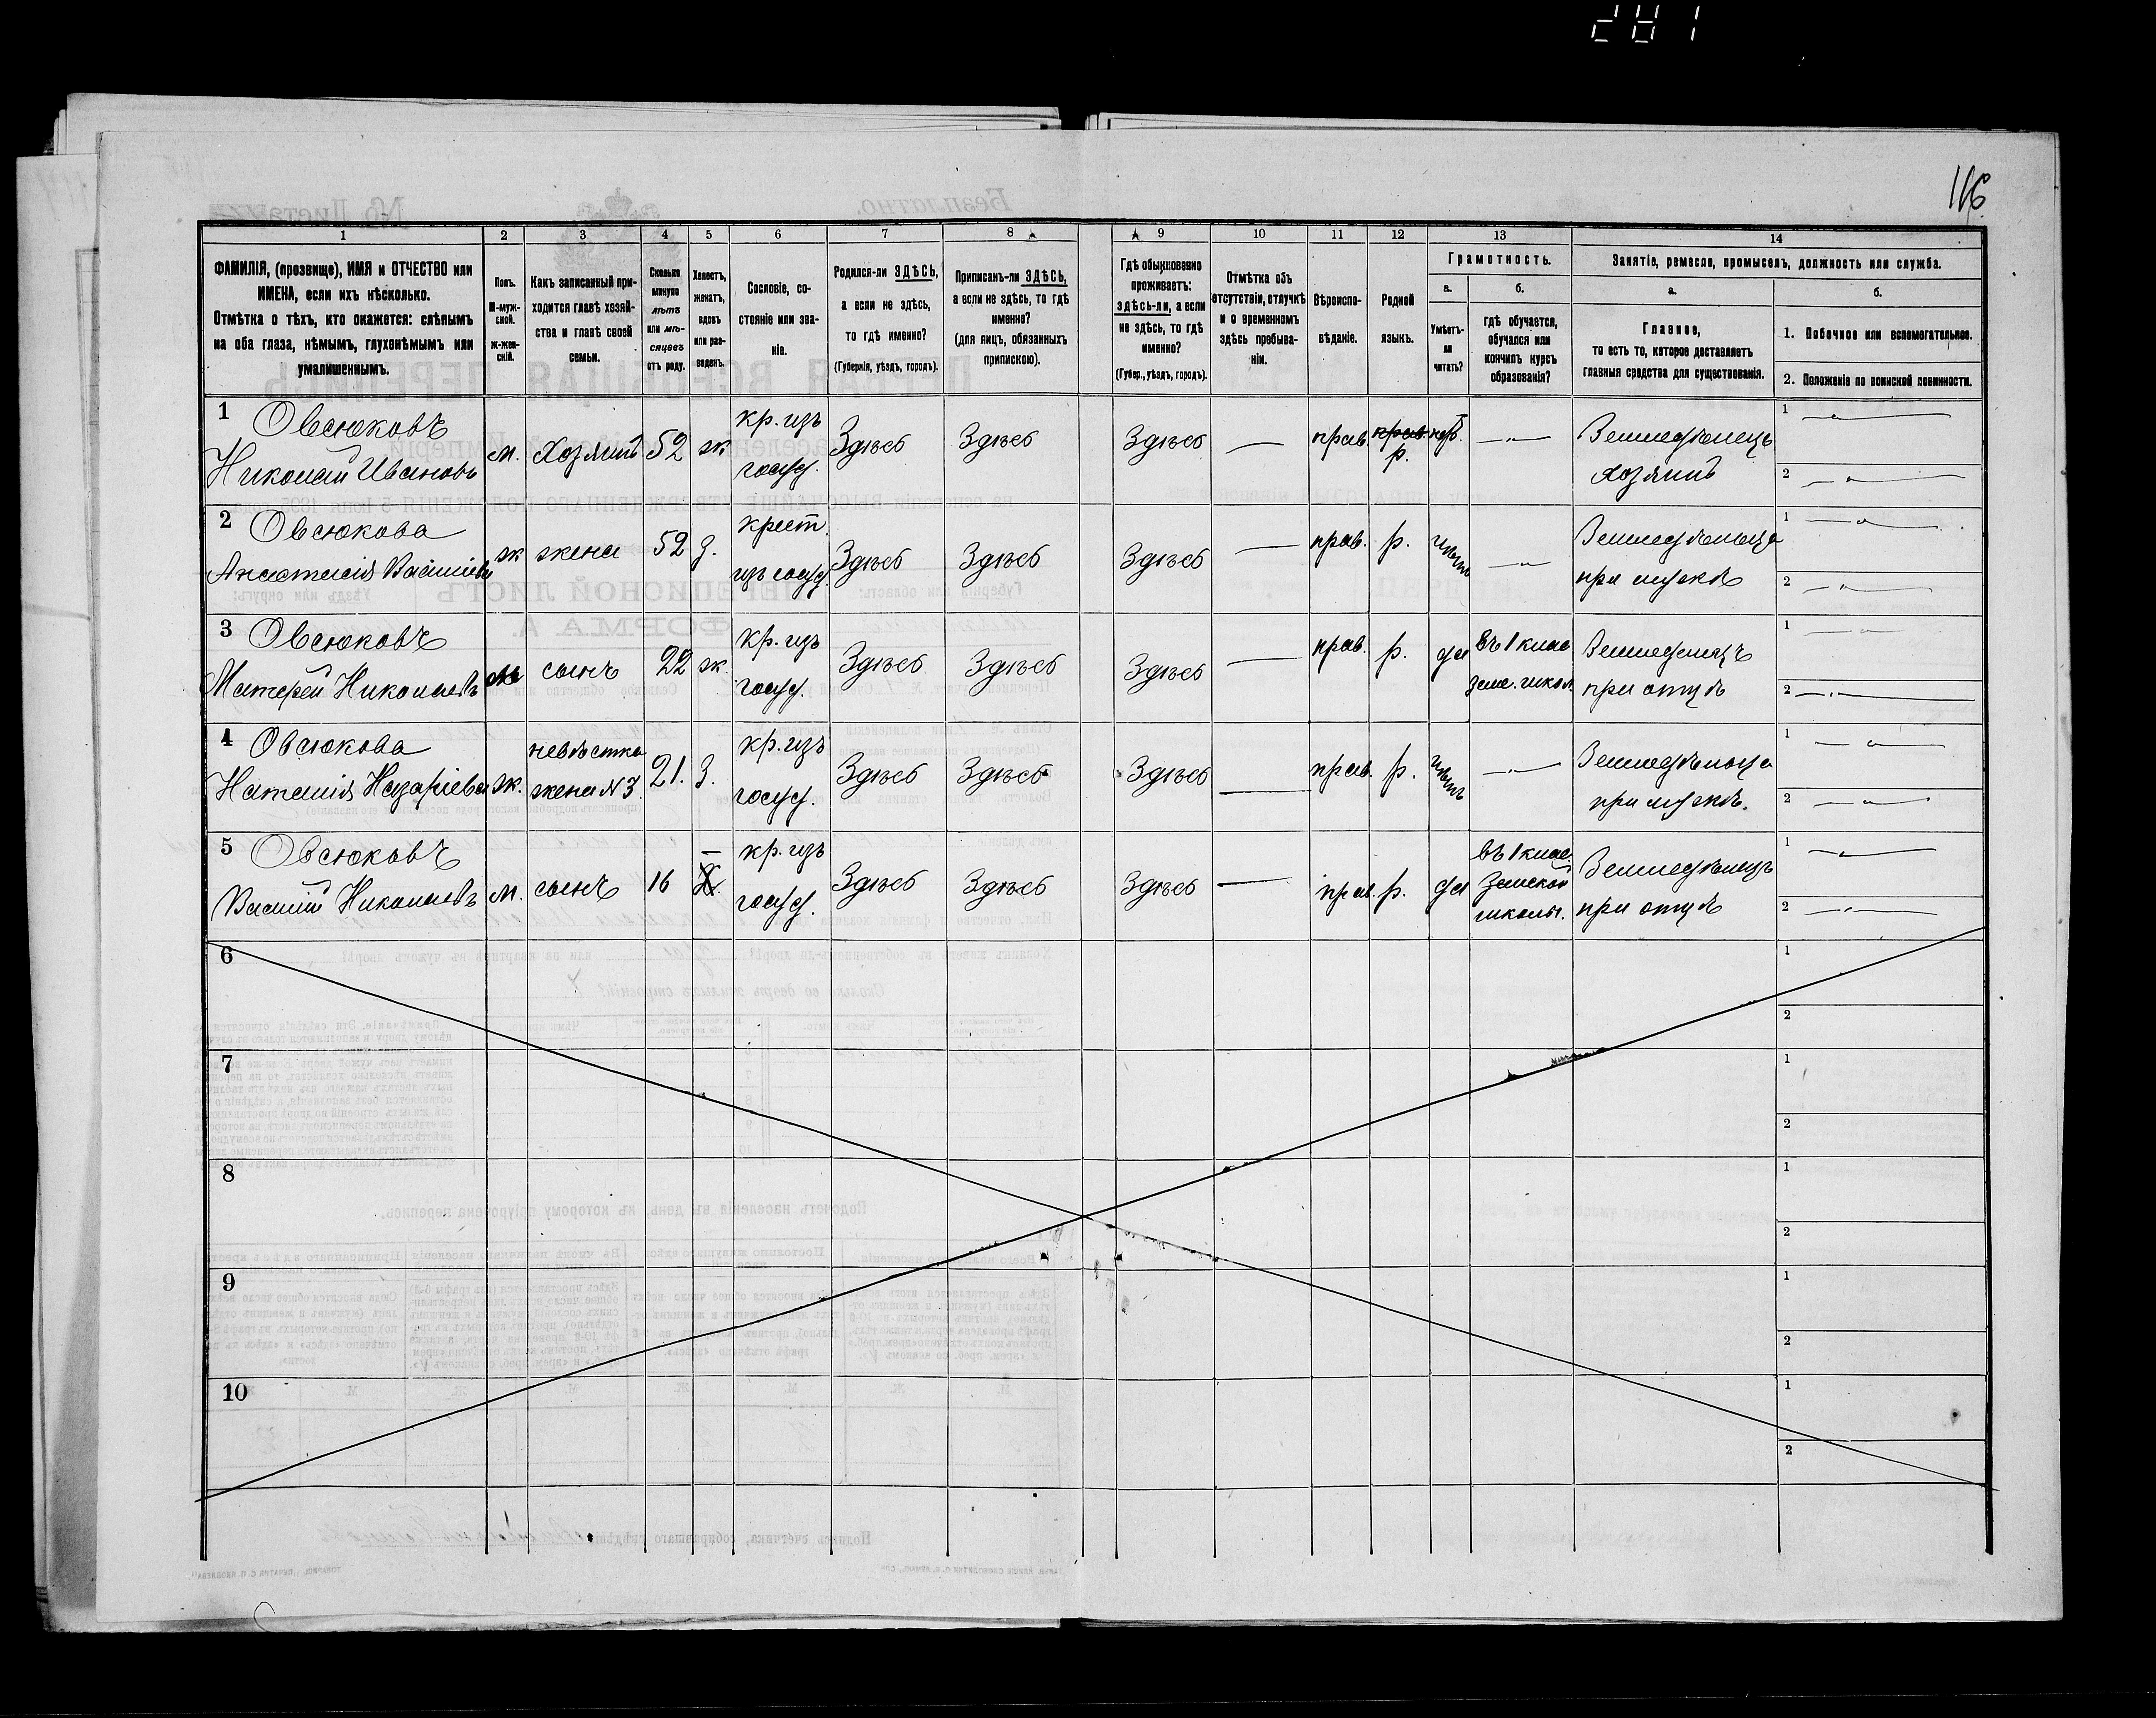 281
116
1 2 3 4 5 6 7 8 9 10 11 12 13 14
ФАМИЛІЯ, (прозвище), ИМЯ и ОТЧЕСТВО или
ИМЕНА, если ихъ нѣсколько.
Отмѣтка о тѣхъ, кто окажется: слѣпымъ
на оба глаза, нѣмымъ, глухонѣмымъ или
умалишеннымъ.
Полъ.
М-муж-
ской.
ж-жен-
скій.
Какъ записанный при-
ходится главѣ хозяй-
ства и главѣ своей
семьи.
Сколько
минуло
лѣтъ
или мѣ-
сяцевъ
отъ роду.
Холостъ,
женатъ,
вдовъ
или раз-
веденъ.
Сословіе, со-
стояніе или зва-
ніе.
Родился-ли ЗДѢСЬ,
а если не здѣсь,
то гдѣ именно?
(Губернія, уѣздъ, городъ).
Приписанъ-ли ЗДѢСЬ,
а если не здѣсь, то гдѣ
именно?
(для лицъ, обязанныхъ
припискою).
Гдѣ обыкновенно
проживаетъ:
здѣсь-ли, а если
не здѣсь, то гдѣ
именно?
(Губер., уѣздъ, городъ).
Отмѣтка объ
отсутствіи, отлучкѣ
и о временномъ
здѣсь пребыва-
ніи.
Вѣроиспо-
вѣданіе.
Родной
языкъ.
Грамотность.
а.
Умѣетъ-
ли
читать?
б.
гдѣ обучается,
обучался или
кончилъ курсъ
образованія?
Занятіе, ремесло, промыселъ, должность или служба.
а.
Главное,
то есть то, которое доставляетъ
главныя средства для существованія.
б.
1. Побочное или вспомогательное.
2. Положеніе по воинской повинности.
1 Овсюковъ
Николай Ивановъ м. Хозяинъ 52 ж кр. изъ
госуд. Здѣсь Здѣсь Здѣсь — прав. прав.
р. нѣтъ. —„— Земледѣлецъ
хозяинъ 1 —„—
2 —„—
2 Овсюкова
Анастасія Васильева ж жена 52 З. крест.
изъ госуд. Здѣсь Здѣсь Здѣсь — прав. р. нѣтъ —„— Земледѣлица
при мужѣ 1 —„—
2 —„—
3 Овсюковъ
Матфей Николаевъ м сынъ 22 ж. кр. изъ
госуд. Здѣсь Здѣсь Здѣсь — прав. р. да въ 1 клас
земс. школ. Земледѣлецъ
при отцѣ 1 —„—
2 —„—
4 Овсюкова
Наталія Назаріева ж. невѣстка
жена N 3 21. З. кр. изъ
госуд. Здѣсь Здѣсь Здѣсь — прав. р. нѣтъ —„— Земледѣлица
при мужѣ. 1 —„—
2 —„—
5 Овсюковъ
Василій Николаевъ м. сынъ 16 Х. кр. изъ
госуд. Здѣсь Здѣсь Здѣсь — прав. р. да въ 1 клас.
Земской
школы. Земледѣлецъ
при отцѣ 1 —„—
2 —„—
6 1
2
7 1
2
8 1
2
9 1
2
10 1
2